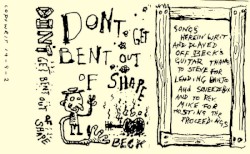 DON'T GET
BENT OUT
OF SHAPE
BECK
DON'T
GET BENT OUT OF
SHAPE
SONGS
HEREIN WRIT
AND PLAYED
OFF BECK'S
GUITAR THANX
TO STEVE FOR
LENDING BANJO
AND SQUEEZBOX
AND TO REV.
MIKE FOR
HOSTING THE
PROCEEDINGS